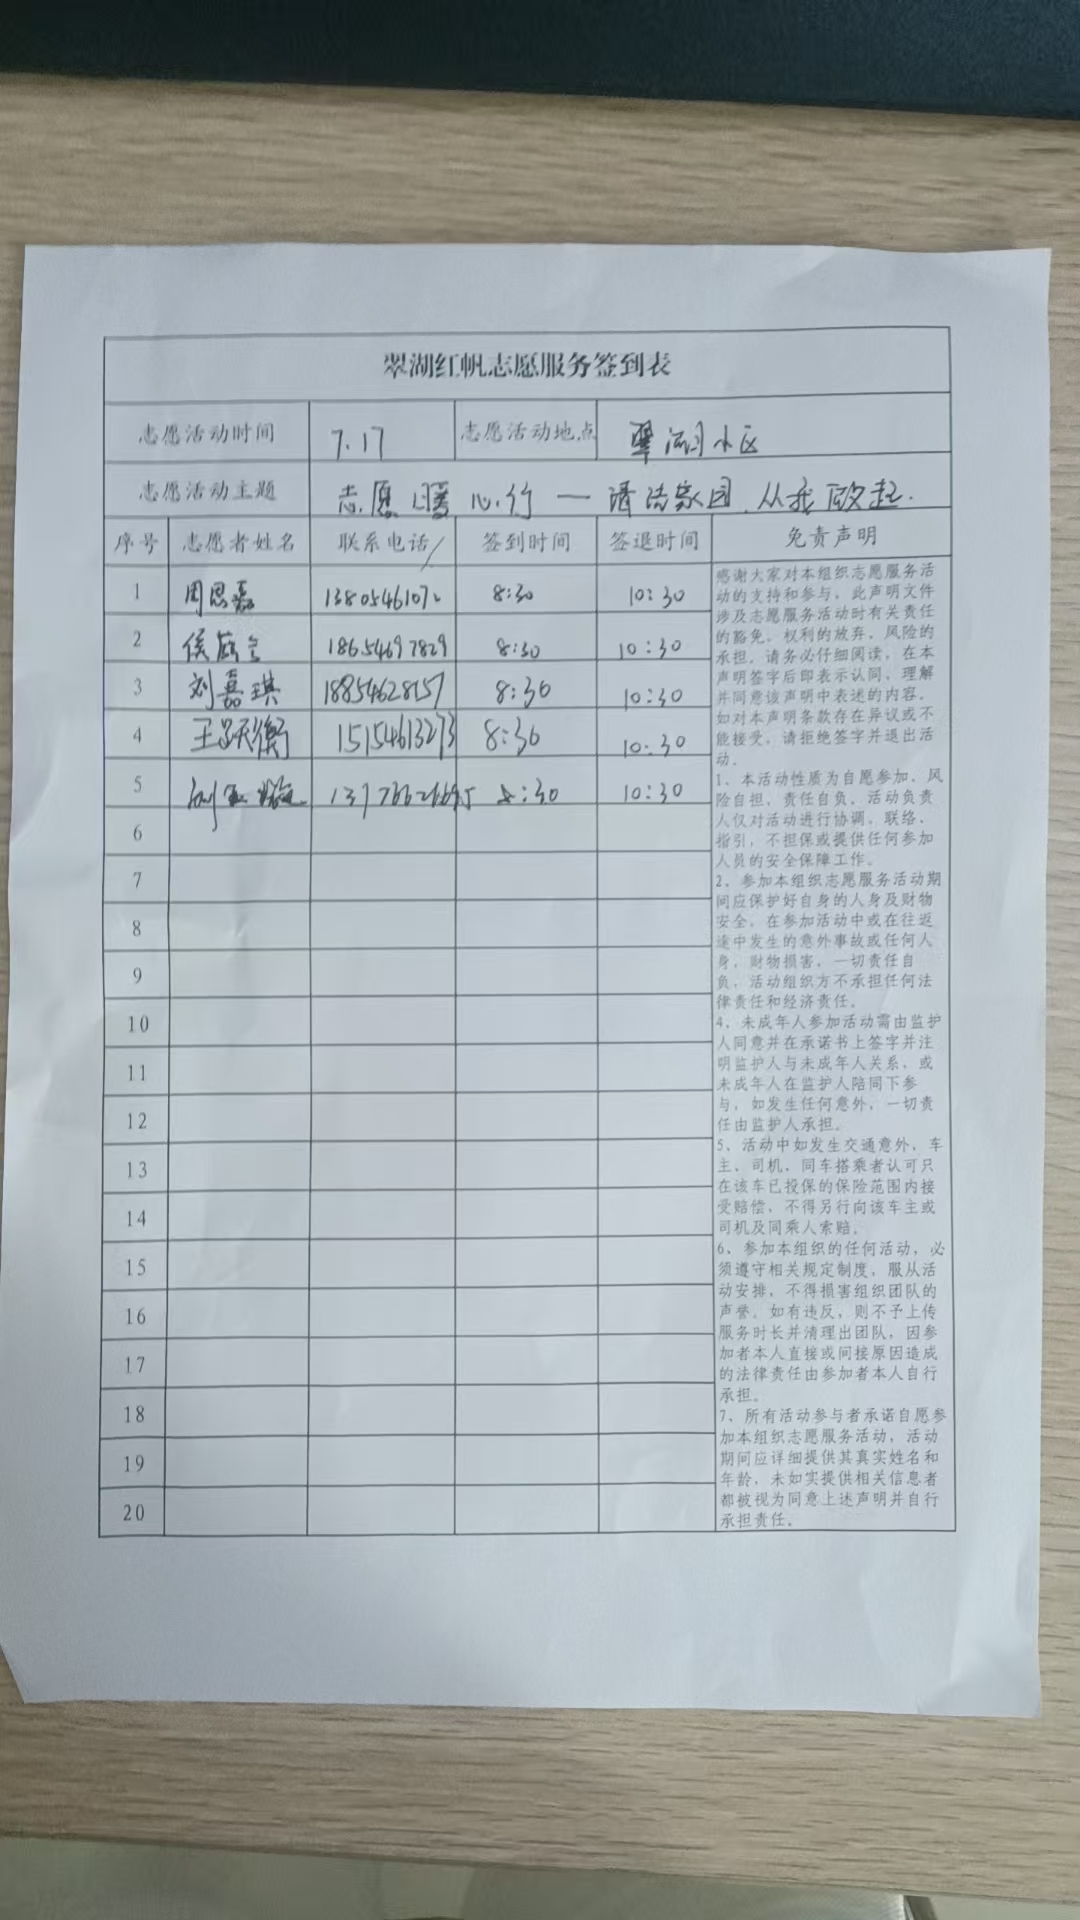 翠湖红帆志愿服务签到表
志愿活动时间 7.17 志愿活动地点 翠湖小区
志愿活动主题 志愿暖心行—清洁家园,从我做起.
序号 志愿者姓名 联系电话 签到时间 签退时间 免责声明
1 周思嘉 8:30 10:30
2 侯 18654697829 8:30 10:30
3 刘嘉琪 18854628157 8:30 10:30
4 王跃衡 15154613273 8:30 10:30
5 刘 8:30 10:30
6
7
8
9
10
11
12
13
14
15
16
17
18
19
20
感谢大家对本组织志愿服务活
动的支持和参与,此声明文件
涉及志愿服务活动时有关责任
的豁免、权利的放弃、风险的
承担。请务必仔细阅读,在本
声明签字后即表示认同、理解
并同意该声明中表述的内容。
如对本声明条款存在异议或不
能接受,请拒绝签字并退出活
动。
1、本活动性质为自愿参加、风
险自担、责任自负。活动负责
人仅对活动进行协调、联络、
指引,不担保或提供任何参加
人员的安全保障工作。
2、参加本组织志愿服务活动期
间应保护好自身的人身及财物
安全,在参加活动中或在往返
途中发生的意外事故或任何人
身,财物损害,一切责任自
负,活动组织方不承担任何法
律责任和经济责任。
4、未成年人参加活动需由监护
人同意并在承诺书上签字并注
明监护人与未成年人关系,或
未成年人在监护人陪同下参
与,如发生任何意外,一切责
任由监护人承担。
5、活动中如发生交通意外,车
主、司机、同车搭乘者认可只
在该车已投保的保险范围内接
受赔偿,不得另行向该车主或
司机及同乘人索赔。
6、参加本组织的任何活动,必
须遵守相关规定制度,服从活
动安排,不得损害组织团队的
声誉。如有违反,则不予上传
服务时长并清理出团队,因参
加者本人直接或间接原因造成
的法律责任由参加者本人自行
承担。
7、所有活动参与者承诺自愿参
加本组织志愿服务活动,活动
期间应详细提供其真实姓名和
年龄,未如实提供相关信息者
都被视为同意上述声明并自行
承担责任。